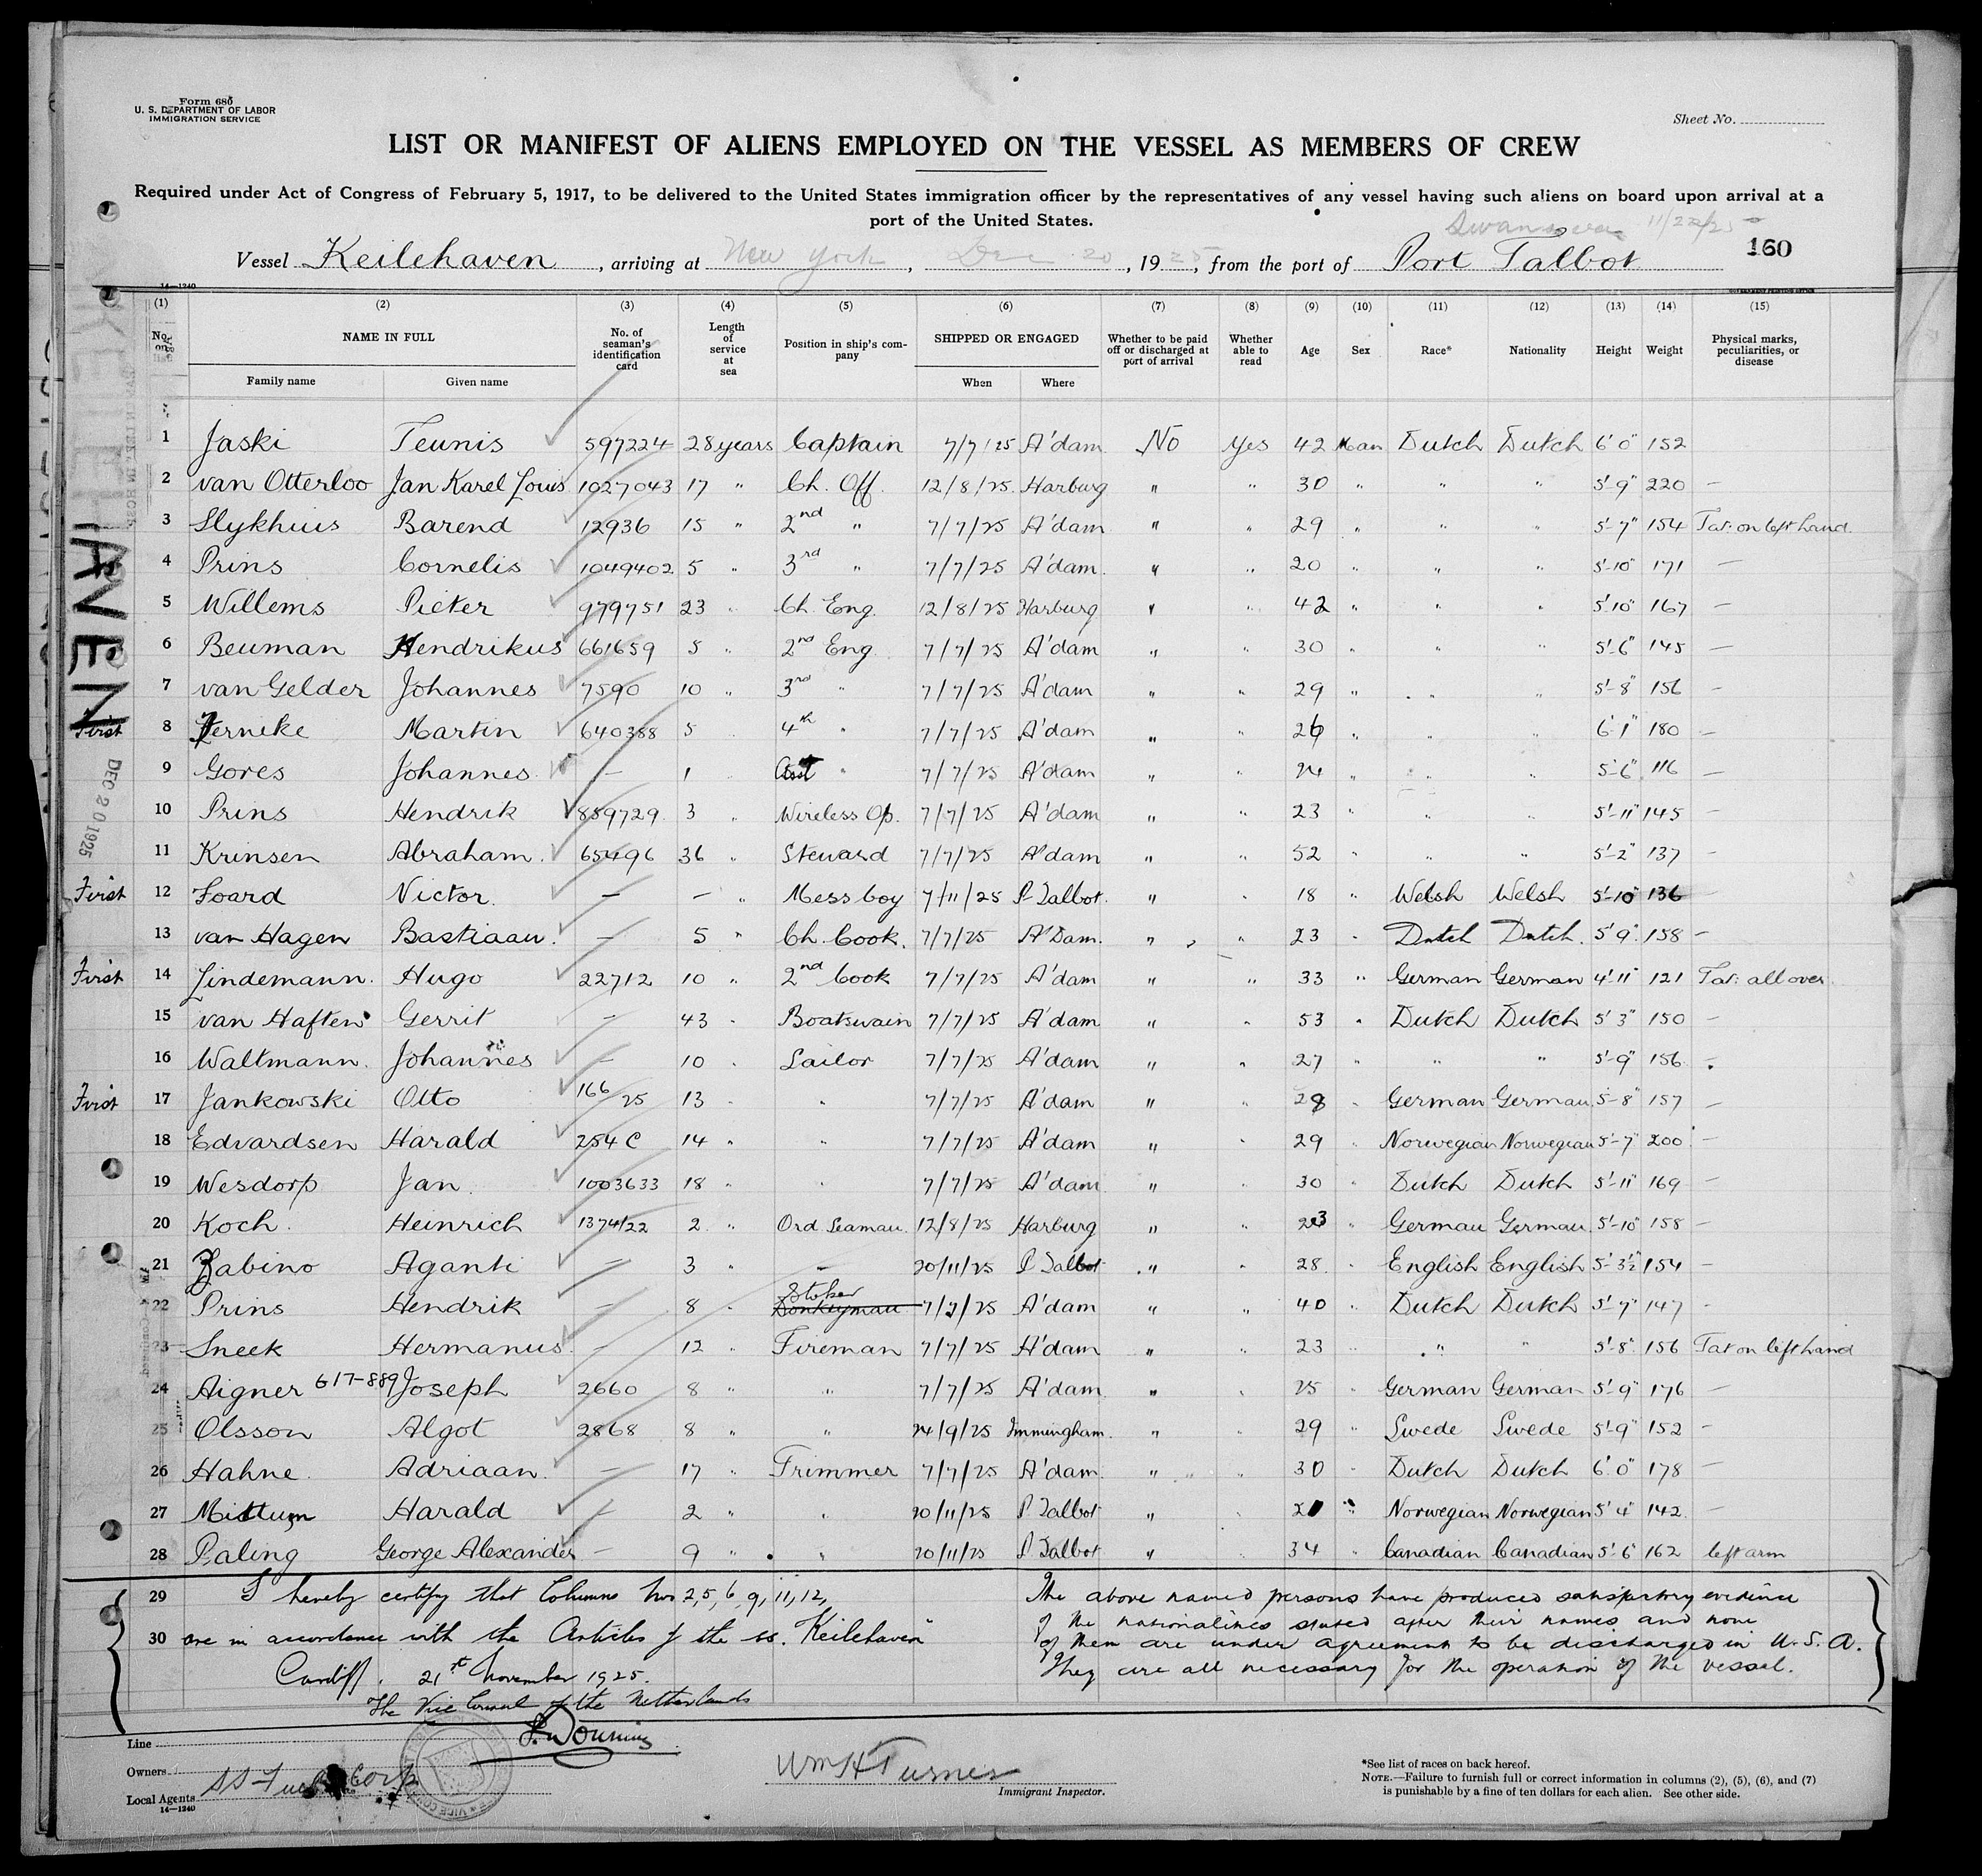 Form 680
U. S. DEPARTMENT OF LABOR
IMMIGRATION SERVICE
Sheet No.
LIST OR MANIFEST OF ALIENS EMPLOYED ON THE VESSEL AS MEMBERS OF CREW
Required under Act of Congress of February 5, 1917, to be delivered to the United States immigration officer by the representatives of any vessel having such aliens on board upon arrival at a
port of the United States.
Swansea 11/22/25
Vessel Keilehaven, arriving at New York, Dec 20, 1925, from the port of Port Talbot 160
14—1240
(1) (2) (3) (4) (5) (6) (7) (8) (9) (10) (11) (12) (13) (14) (15)
No. on NAME IN FULL No. of seaman's identification card Length of service at sea Position in ship's company SHIPPED OR ENGAGED Whether to be paid off or discharged at port of arrival Whether able to read Age Sex Race* Nationality Height Weight Physical marks, peculiarities, or disease
Family name Given name When Where
1 Jaski Teunis 597224 28 years Captain 7/7/25 A'dam No Yes 42 Man Dutch Dutch 6'0" 152
2 van Otterloo Jan Karel Louis 1027043 17 " Ch. Off. 12/8/25 Harburg " " 30 " " " 5'-9" 220 —
3 Slykhuis Barend 12936 15 " 2nd " 7/7/25 A'dam " " 29 " " " 5'-7" 154 Tat: on left hand
4 Prins Cornelis 1049402 5 " 3rd " 7/7/25 A'dam. " " 20 " " " 5'-10" 171 —
5 Willems Pieter 979751 23 " Ch. Eng. 12/8/25 Harburg " " 42 " " " 5'10" 167 —
6 Beuman Hendrikus 661659 5 " 2nd Eng 7/7/25 A'dam " " 30 " " " 5'-6" 145 —
7 van Gelder Johannes 7590 10 " 3rd " 7/7/25 A'dam " " 29 " " " 5'-8" 156 —
First 8 Terneke Martin 640388 5 " 4th " 7/7/25 A'dam " 26 " " " 6'1" 180 —
9 Gores Johannes — 1 " Asst " 7/7/25 A'dam " 24 " " " 5'-6" 116 —
10 Prins Hendrik 859729 3 " Wireless Op. 7/7/25 A'dam " " 23 " " " 5'-11" 145 —
11 Krinsen Abraham. 65496 36 " Steward 7/7/25 A'dam " " 52 " " " 5'-2" 137 —
First 12 Foard Victor. — — " Mess boy 7/11/25 P. Talbot. " " 18 " Welsh Welsh 5'-10" 136 —
13 van Hagen Bastiaan. — 5 " Ch. Cook. 7/7/25 A'Dam. " " 23 " Dutch Dutch. 5'9" 158 —
First 14 Lindemann. Hugo 22712 10 " 2nd Cook 7/7/25 A'dam " " 33 " German German 4'11" 121 Tat: all over.
15 van Haften Gerrit — 43 " Boatswain 7/7/25 A'dam " " 53 " Dutch Dutch 5'3" 150 —
16 Waltmann. Johannes — 10 " Sailor 7/7/25 A'dam " " 27 " " " 5'-9" 156 —
First 17 Jankowski Otto 166/25 13 " " 7/7/25 A'dam " " 28 " German German 5'-8" 157 —
18 Edvardsen Harald 254 C 14 " " 7/7/25 A'dam " " 29 " Norwegian Norwegian 5'-7" 200 —
19 Wesdorp Jan. 1003633 18 " " 7/7/25 A'dam " " 30 " Dutch Dutch 5'-11" 169 —
20 Koch. Heinrich 1374/22 2 " Ord. Seaman. 12/8/25 Harburg " " 23 " German German. 5'-10" 158 —
21 Zabino Aganti — 3 " " 20/11/25 P Talbot " " 28 " English English 5'-3½" 154 —
22 Prins Hendrik — 8 " Stoker Donkeyman 7/7/25 A'dam " " 40 " Dutch Dutch 5'-7" 147 -
23 Sneek Hermanus. — 12 " Fireman 7/7/25 A'dam " " 23 " " " 5'-8" 156 Tat on left hand
24 Aigner 617-889 Joseph 2660 8 " " 7/7/25 A'dam " " 25 " German German 5'-9" 176 —
25 Olsson Algot 2868 8 " " 24/9/25 Immingham. " " 29 " Swede Swede 5'-9" 152 —
26 Hahne. Adriaan. — 17 " Trimmer 7/7/25 A'dam " " 30 " Dutch Dutch 6'0" 178 —
27 Mittum Harald — 2 " " 20/11/25 P Talbot " " " Norwegian Norwegian 5'4" 142 —
28 Paling George Alexander — 9 " " 20/11/25 P Talbot " " 34 " Canadian Canadian 5'-6" 162 left arm
29 I hereby certify that Columns Nos 2, 5, 6, 9, 11, 12,
30 are in accordance with the Articles of the ss. "Keilehaven"
Cardiff. 21st November 1925.
The Vice Consul of the Netherlands
The above named persons have produced satisfactory evidence
of the nationalities stated after their names and none
of them are under agreement to be discharged in U.S.A.
They are all necessary for the operation of the vessel.
AVEN
DEC 20 1925
Line
Owners
Local Agents
14—1240
Wm H Turner
Immigrant Inspector.
*See list of races on back hereof.
NOTE.—Failure to furnish full or correct information in columns (2), (5), (6), and (7)
is punishable by a fine of ten dollars for each alien. See other side.